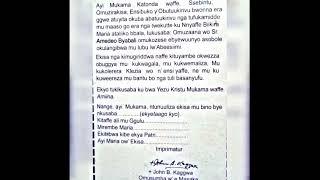 Ayi Mukama Katonda waffe, Ssebintu,
Omuzirakisa, Ensibuko y'Obutuukirivu bwonna era
ggwe atuyita okuba abatuukirivu nga tufukamidde
mu maaso go era nga twekutte ku Nnyaffe Bikira
Maria ataliiko bbala, tukusaba: Omuzaana wo Sr.
Amedeo Byabali omukozese ebyewuunyo asobole
okulangibwa mu lubu lw'Abeesiimi.
Ekisa nga kimugiriddwa naffe kituyambe okwezza
obuggya mu kukwagala, mu kukwemaliza. Mu
kukolerera Klezia wo n'ensi yaffe, ne mu kuku
weereza mu bantu bo nga tuli basanyufu.
Ekyo tukikusaba ku bwa Yezu Kristu Mukama waffe
Amiina.
Nange, ayi Mukama, ntunuuliza ekisa mu bino bye
nkusaba (ekyetaago kyo).
Kitaffe ali mu Ggulu
Mirembe Maria
Ekitiibwa kibe ekya Patri
Ayi Maria ow' Ekisa
Imprimatur
+ John B. Kaggwa
+ John B. Kaggwa
Omusumba w' e Masaka